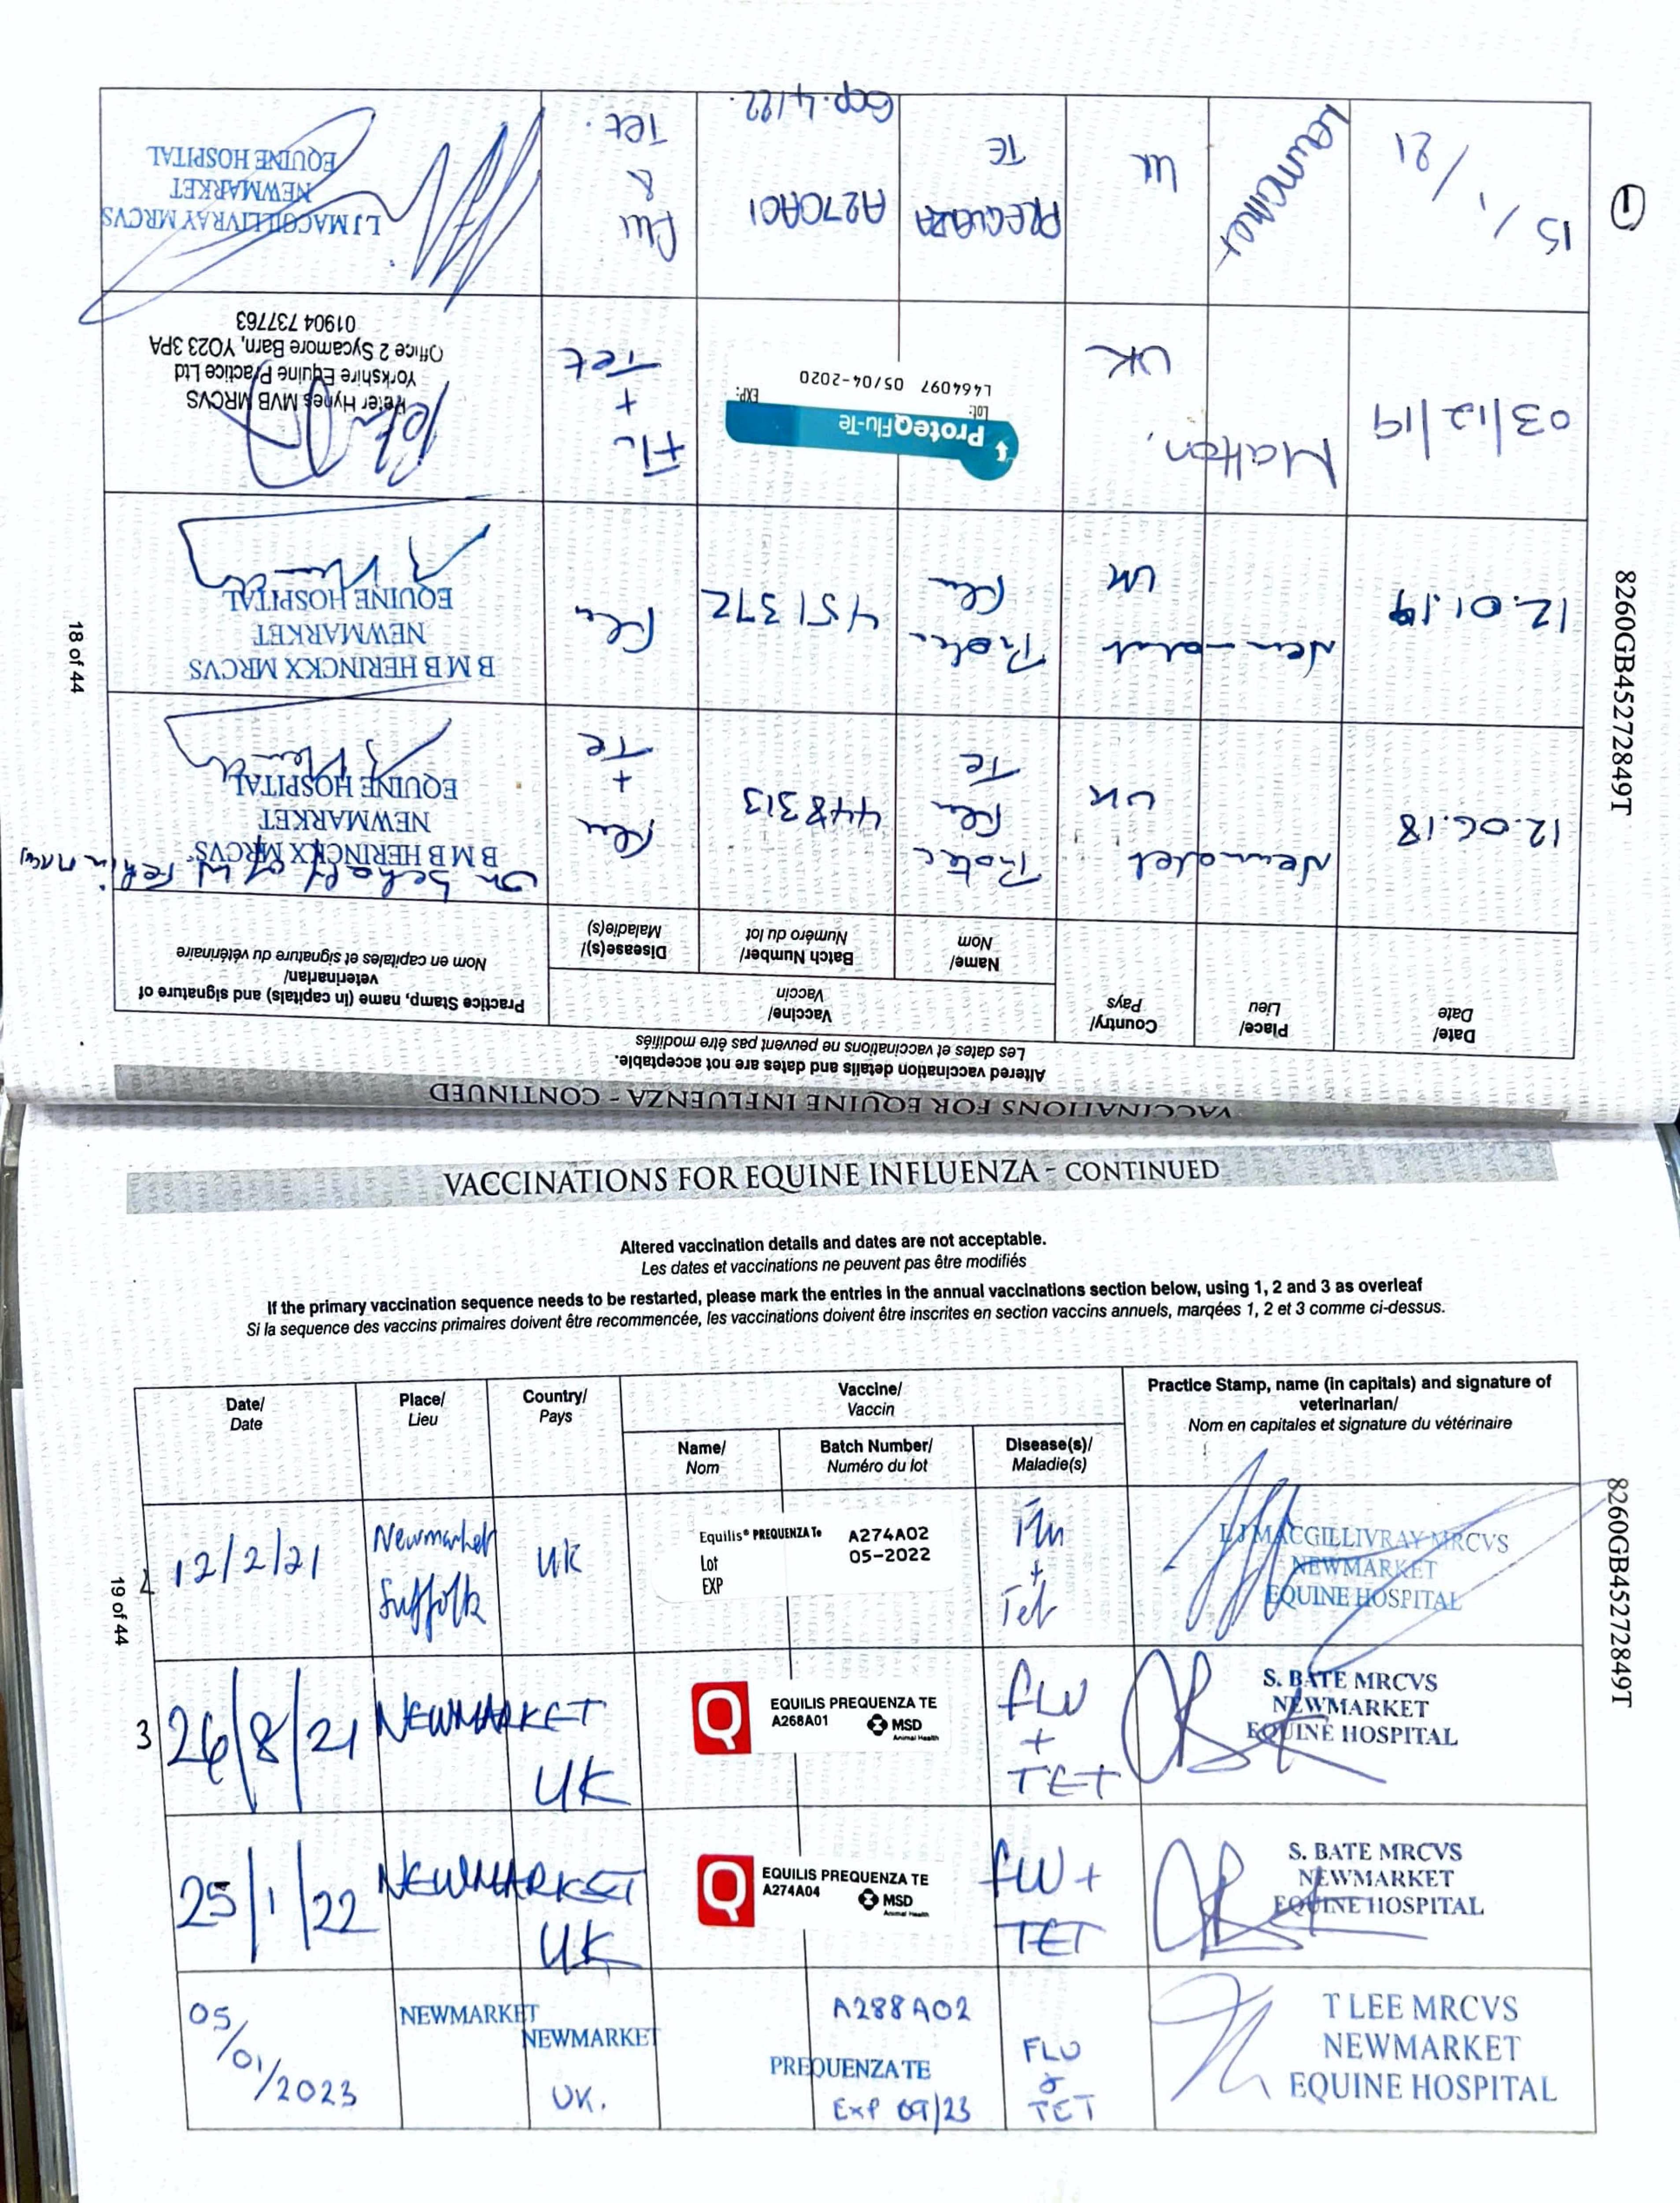 VACCINATIONS FOR EQUINE INFLUENZA - CONTINUED
Altered vaccination details and dates are not acceptable.
Les dates et vaccinations ne peuvent pas être modifiés
Date/
Date
Place/
Lieu
Country/
Pays
Vaccine/
Vaccin
Name/
Nom
Batch Number/
Numéro du lot
Disease(s)/
Maladie(s)
Practice Stamp, name (in capitals) and signature of
veterinarian/
Nom en capitales et signature du vétérinaire
12.06.18
Newmarket
UK
Protec
Flu
Te
448313
Flu
+
Te
On behalf of W
B M B HERINCKX MRCVS
NEWMARKET
EQUINE HOSPITAL
12.01.19
Newmarket
UK
Protec
Flu
451372
Flu
B M B HERINCKX MRCVS
NEWMARKET
EQUINE HOSPITAL
03/12/19
Malton,
UK
ProteqFlu-Te
Lot: EXP:
L464097 05/04-2020
Flu
+
Tet
Peter Hynes MVB MRCVS
Yorkshire Equine Practice Ltd
Office 2 Sycamore Barn, YO23 3PA
01904 737763
1
15/1/21
UK
PREQUENZA
TE
A270A01
Exp. 4/22.
Flu
&
Tet.
L J MACGILLIVRAY MRCVS
NEWMARKET
EQUINE HOSPITAL
18 of 44
8260GB45272849T
VACCINATIONS FOR EQUINE INFLUENZA - CONTINUED
Altered vaccination details and dates are not acceptable.
Les dates et vaccinations ne peuvent pas être modifiés
If the primary vaccination sequence needs to be restarted, please mark the entries in the annual vaccinations section below, using 1, 2 and 3 as overleaf
Si la sequence des vaccins primaires doivent être recommencée, les vaccinations doivent être inscrites en section vaccins annuels, marqées 1, 2 et 3 comme ci-dessus.
Date/
Date
Place/
Lieu
Country/
Pays
Vaccine/
Vaccin
Name/
Nom
Batch Number/
Numéro du lot
Disease(s)/
Maladie(s)
Practice Stamp, name (in capitals) and signature of
veterinarian/
Nom en capitales et signature du vétérinaire
2
12/2/21
Newmarket
Suffolk
UK
Equilis® PREQUENZA Te A274A02
Lot 05-2022
EXP
Flu
+
Tet
L J MACGILLIVRAY MRCVS
NEWMARKET
EQUINE HOSPITAL
3
26/8/21
NEWMARKET
UK
Q
EQUILIS PREQUENZA TE
A268A01
MSD
Animal Health
FLU
+
TET
S. BATE MRCVS
NEWMARKET
EQUINE HOSPITAL
25/1/22
NEWMARKET
UK
Q
EQUILIS PREQUENZA TE
A274A04
MSD
Animal Health
FLU +
TET
S. BATE MRCVS
NEWMARKET
EQUINE HOSPITAL
05/01/2023
NEWMARKET
NEWMARKET
UK.
A288A02
PREQUENZA TE
EXP 09/23
FLU
&
TET
T LEE MRCVS
NEWMARKET
EQUINE HOSPITAL
19 of 44
8260GB45272849T